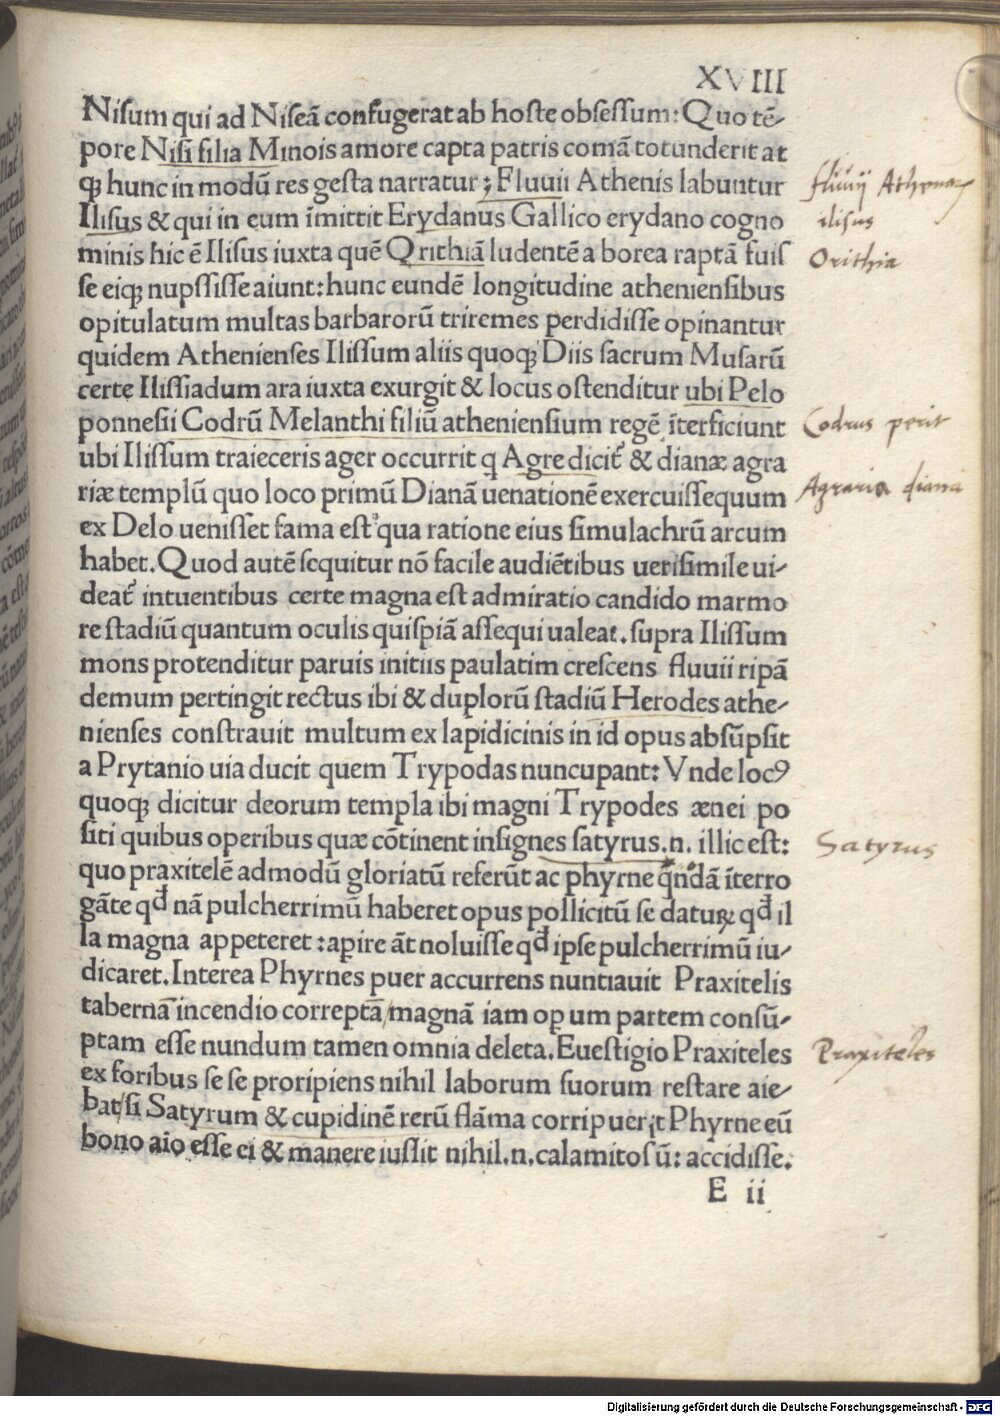 XVIII
Niſum qui ad Niſeā confugerat ab hoſte obſeſſum: Quo tē⸗
pore Niſi filia Minois amore capta patris comā totunderit at
qꝫ hunc in modū res geſta narratur ; Fluuii Athenis labuntur
Iliſus & qui in eum īmittit Erydanus Gallico erydano cogno
minis hic ē Iliſus iuxta quē Qrithiā ludentē a borea raptā fuiſ
ſe eiqꝫ nupſſiſſe aiunt: hunc eundē longitudine athenienſibus
opitulatum multas barbarorū triremes perdidiſſe opinantur
quidem Athenienſes Iliſſum aliis quoqꝫ Diis ſacrum Muſarū
certę Iliſſiadum ara iuxta exurgit & locus oſtenditur ubi Pelo
ponneſii Codrū Melanthi filiū athenienſium regē īterficiunt
ubi Iliſſum traieceris ager occurrit q Agre dicit᷑ & dianæ agra
riæ templū quo loco primū Dianā uenationē exercuiſſe quum
ex Delo ueniſſet fama eſt: qua ratione eius ſimulachrū arcum
habet. Quod autē ſequitur nō facile audiētibus ueriſimile ui⸗
deat᷑ intuentibus certe magna eſt admiratio candido marmo
re ſtadiū quantum oculis quiſpiā aſſequi ualeat. ſupra Iliſſum
mons protenditur paruis initiis paulatim creſcens fluuii ripā
demum pertingit rectus ibi & duplorū ſtadiū Herodes athe⸗
nienſes conſtrauit multum ex lapidicinis in id opus abſūpſit
a Prytanio uia ducit quem Trypodas nuncupant: Vnde locꝰ
quoqꝫ dicitur deorum templa ibi magni Trypodes ænei po
ſiti quibus operibus quæ cōtinent inſignes ſatyrus.n. illic eſt:
quo praxitelē admodū gloriatū referūt ac phyrne q̄ndā īterro
gāte qđ nā pulcherrimū haberet opus pollicitū ſe daturꝝ qđ il
la magna appeteret : apire āt noluiſſe qđ ipſe pulcherrimū iu⸗
dicaret. Interea Phyrnes puer accurrens nuntiauit Praxitelis
tabernā incendio correptā/ magnā iam opum partem conſū⸗
ptam eſſe nundum tamen omnia deleta. Eueſtigio Praxiteles
ex foribus ſe ſe proripiens nihil laborum ſuorum reſtare aie⸗
bat/ ſi Satyrum & cupidinē rerū flāma corripuerit Phyrne eū
bono aīo eſſe ei & manere iuſſit nihil.n. calamitoſū: accidiſſe.
E ii
fluuij Athenarꝝ
ilisus
Orithia
Codrus perit
Agraria diana
Satyrus
Praxiteles
Digitalisierung gefördert durch die Deutsche Forschungsgemeinschaft - DFG